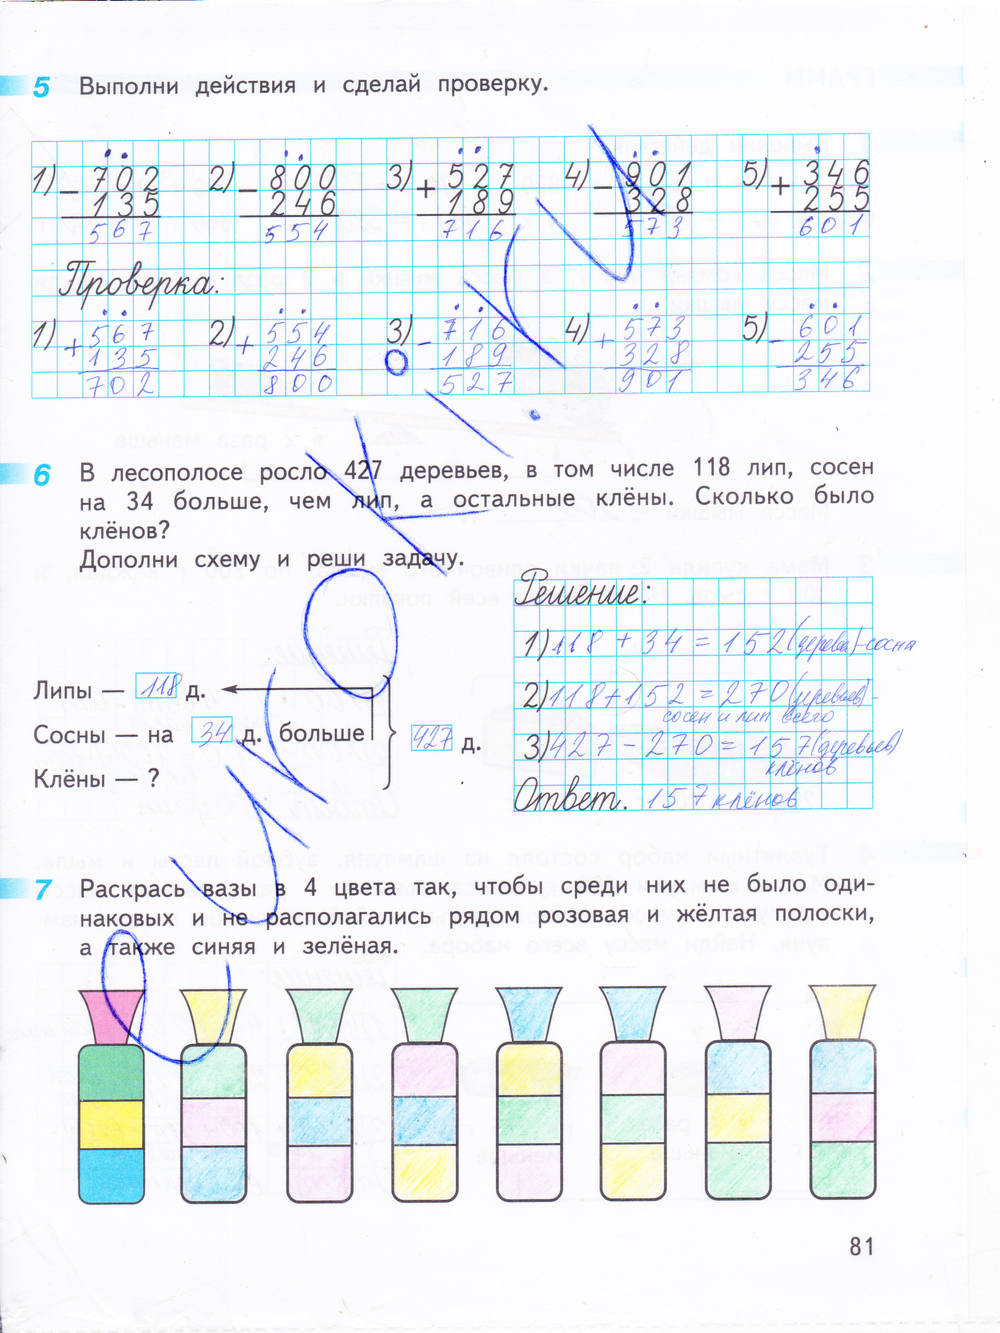 5 Выполни действия и сделай проверку.
1) − 702 2) − 800 3) + 527 4) − 901 5) + 346
135 246 189 328 255
567 554 716 573 601
Проверка:
1) + 567 2) + 554 3) − 716 4) + 573 5) − 601
135 246 189 328 255
702 800 527 901 346
6 В лесополосе росло 427 деревьев, в том числе 118 лип, сосен
на 34 больше, чем лип, а остальные клёны. Сколько было
клёнов?
Дополни схему и реши задачу.
Липы — 118 д.
Сосны — на 34 д. больше
Клёны — ?
427 д.
Решение:
1) 118 + 34 = 152 (дерева) - сосна
2) 118 + 152 = 270 (деревьев) -
сосен и лип всего
3) 427 − 270 = 157 (деревьев)
клёнов
Ответ. 157 клёнов
7 Раскрась вазы в 4 цвета так, чтобы среди них не было оди-
наковых и не располагались рядом розовая и жёлтая полоски,
а также синяя и зелёная.
81